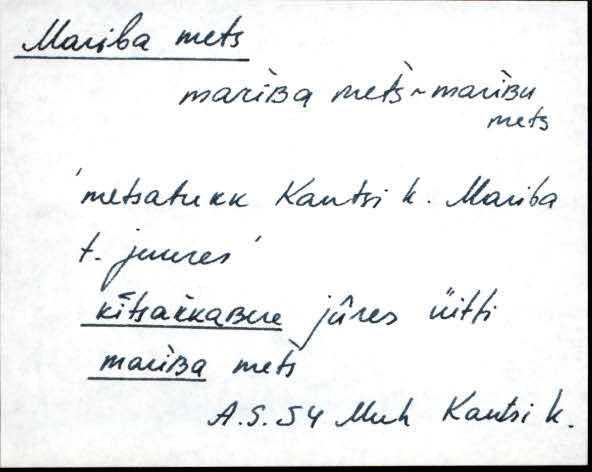 Mariba mets
mariʙa metš ~ mariʙu
mets
'metsatukk Kantsi k. Mariba
t. juures'
kītsakkaʙere jûres üitti
mariʙa metš
A.S. 54 Muh Kantsi k.